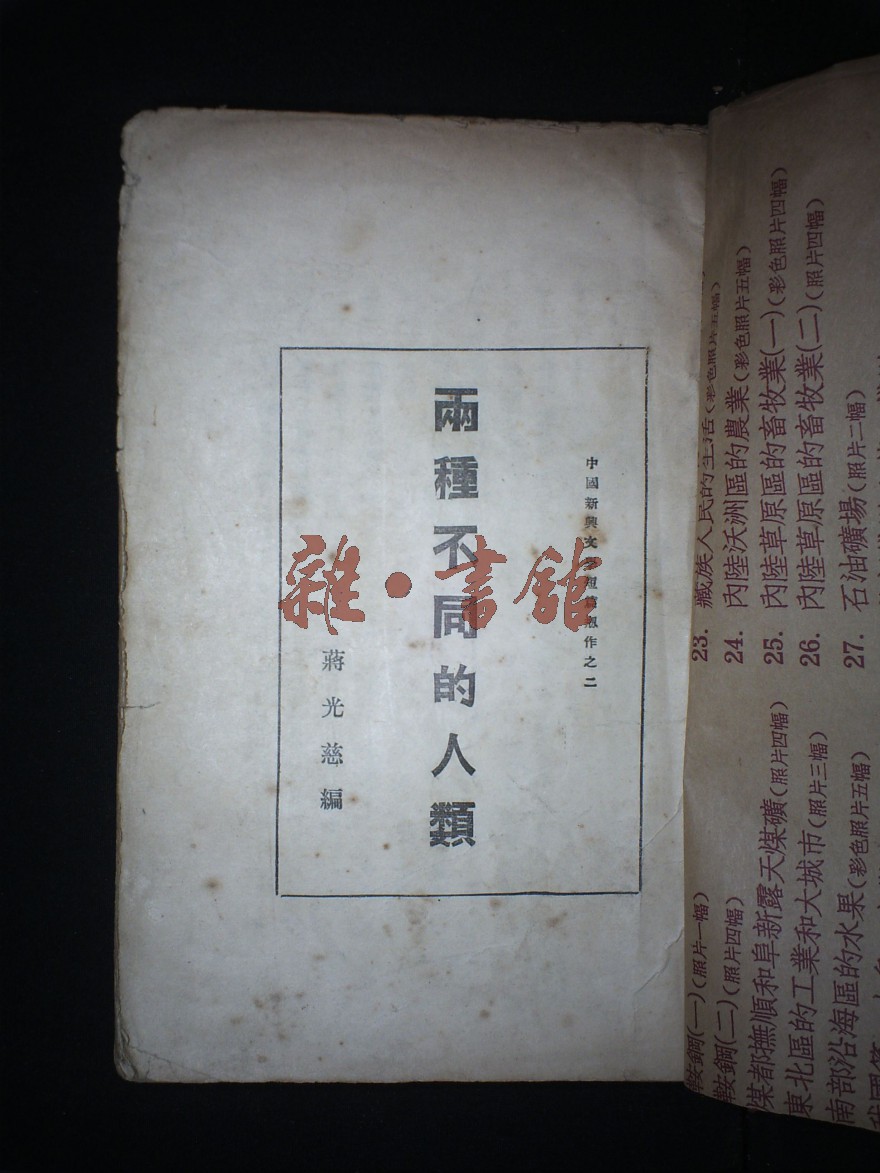 中國新興文學短篇創作之二
兩種不同的人類
蔣光慈編
雜·書館
23. 藏族人民的生活(彩色照片五幅)
24. 內陸沃洲區的農業(彩色照片五幅)
25. 內陸草原區的畜牧業(一)(彩色照片四幅)
26. 內陸草原區的畜牧業(二)(照片四幅)
27. 石油礦場(照片二幅)
鞍鋼(一)(照片一幅)
鞍鋼(二)(照片四幅)
煤都撫順和阜新露天煤礦(照片四幅)
東北區的工業和大城市(照片三幅)
南部沿海區的水果(彩色照片五幅)